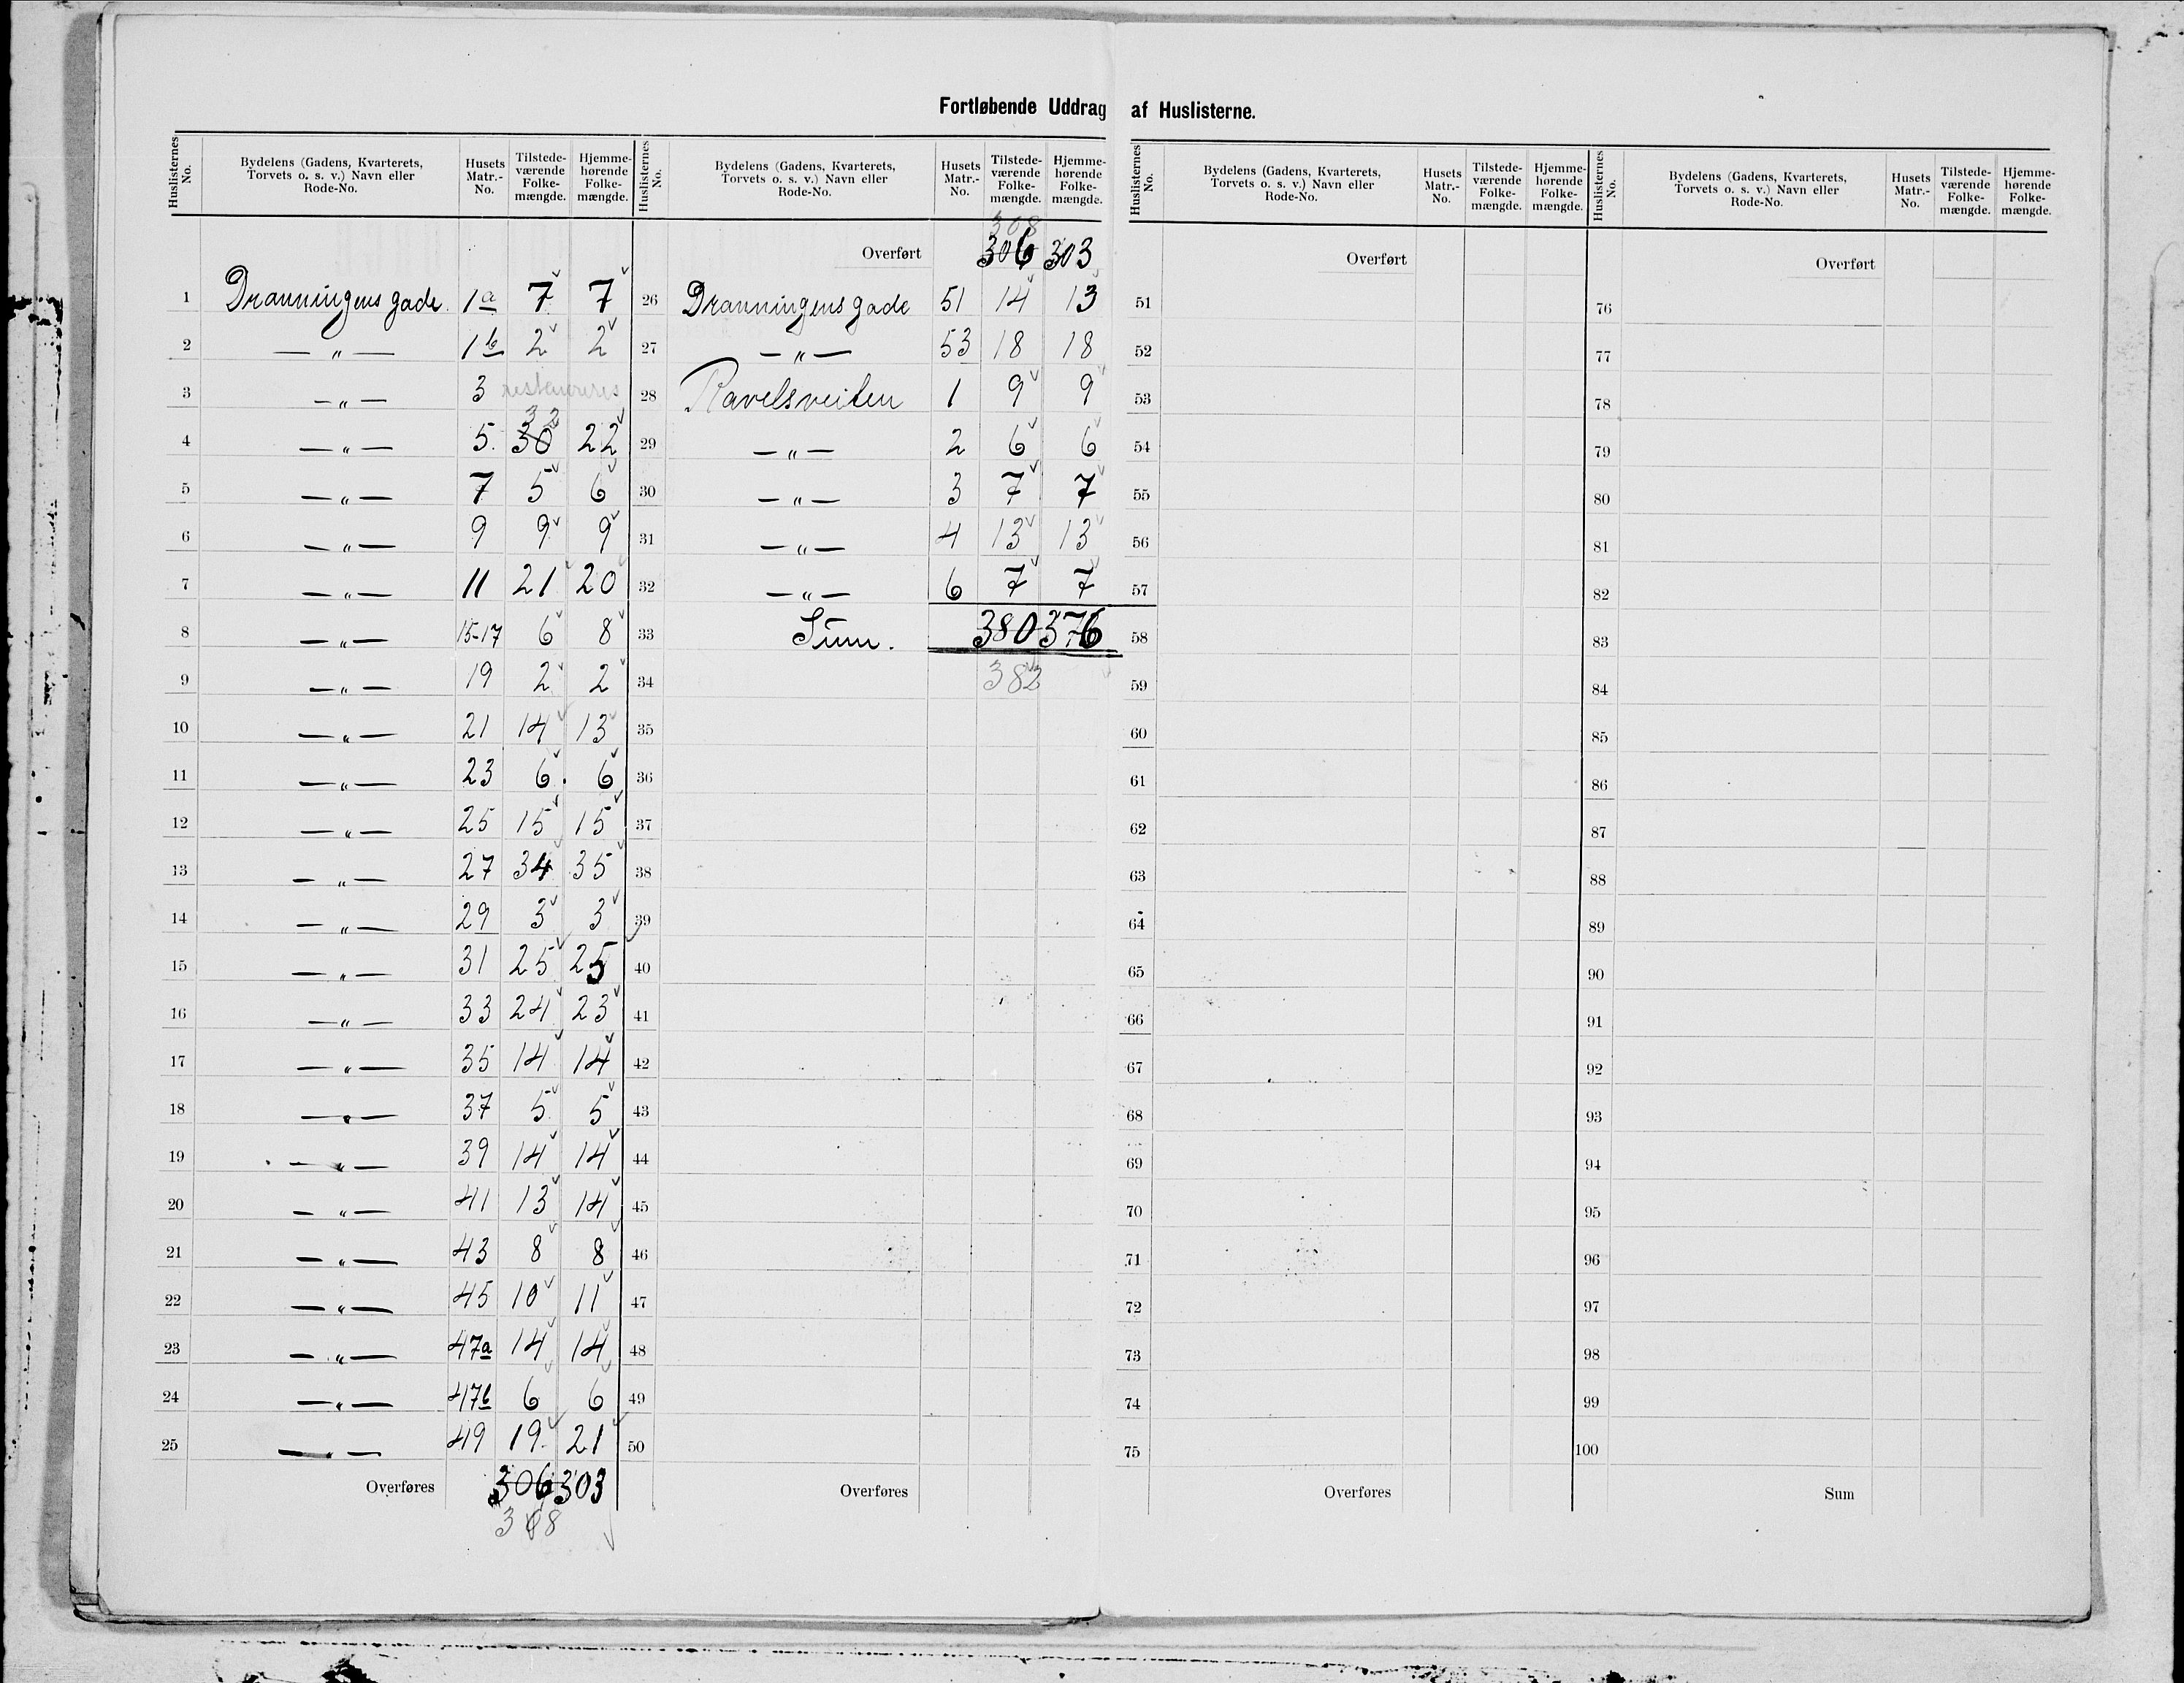 Fortløbende Uddrag af Huslisterne.
Huslisternes No. Bydelens (Gadens, Kvarterets, Torvets o. s. v.) Navn eller Rode-No. Husets Matr.-No. Tilstedeværende Folkemængde. Hjemmehørende Folkemængde.
1 Dronningens gade. 1a 7 7
2 — " — 1b 2 2
3 — " — 3 restaureres
32
4 — " — 5. 30 22
5 — " — 7 5 6
6 — " — 9 9 9
7 — " — 11 21 20
8 — " — 15-17 6 8
9 — " — 19 2 2
10 — " — 21 14 13
11 — " — 23 6. 6
12 — " — 25 15 15
13 — " — 27 34 35
14 — " — 29 3 3
15 — " — 31 25 25
16 — " — 33 24 23
17 — " — 35 14 14
18 — " — 37 5 5
19 — " — 39 14 14
20 — " — 41 13 14
21 — " — 43 8 8
22 — " — 45 10 11
23 — " — 47a 14 14
24 — " — 47b 6 6
25 — " — 49 19. 21
Overføres 306 303
308
Huslisternes No. Bydelens (Gadens, Kvarterets, Torvets o. s. v.) Navn eller Rode-No. Husets Matr.-No. Tilstedeværende Folkemængde. Hjemmehørende Folkemængde.
308
Overført 306 303
26 Dronningens gade 51 14 13
27 — " — 53 18 18
28 Ravelsveiten 1 9 9
29 — " — 2 6 6
30 — " — 3 7 7
31 — " — 4 13 13
32 — " — 6 7 7
33 Sum. 380 376
34 382
35
36
37
38
39
40
41
42
43
44
45
46
47
48
49
50
Overføres
Huslisternes No. Bydelens (Gadens, Kvarterets, Torvets o. s. v.) Navn eller Rode-No. Husets Matr.-No. Tilstedeværende Folkemængde. Hjemmehørende Folkemængde.
Overført
51
52
53
54
55
56
57
58
59
60
61
62
63
64
65
66
67
68
69
70
71
72
73
74
75
Overføres
Huslisternes No. Bydelens (Gadens, Kvarterets, Torvets o. s. v.) Navn eller Rode-No. Husets Matr.-No. Tilstedeværende Folkemængde. Hjemmehørende Folkemængde.
Overført
76
77
78
79
80
81
82
83
84
85
86
87
88
89
90
91
92
93
94
95
96
97
98
99
100
Sum